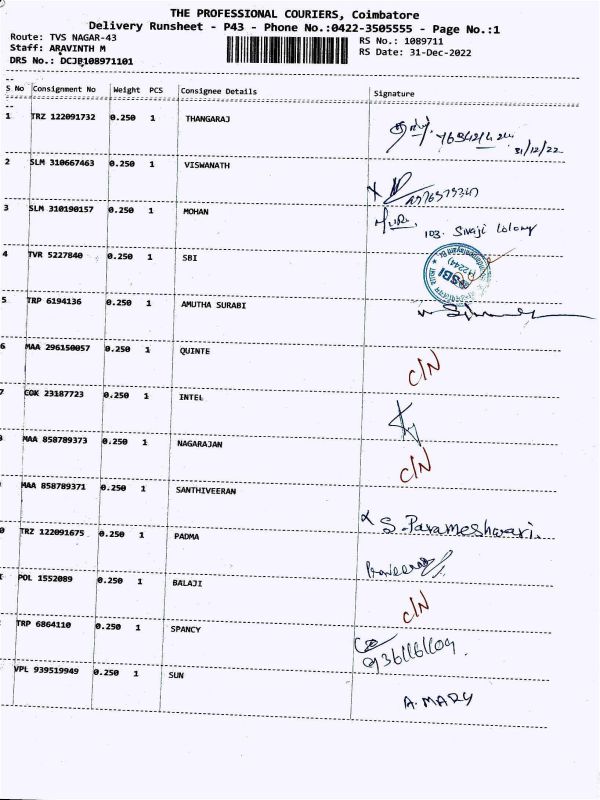 THE PROFESSIONAL COURIERS, Coimbatore
Delivery Runsheet - P43 - Phone No.:0422-3505555 - Page No.:1
Route: TVS NAGAR-43 RS No.: 1089711
Staff: ARAVINTH M RS Date: 31-Dec-2022
DRS No.: DCJB108971101
S No Consignment No Weight PCS Consignee Details Signature
1 TRZ 122091732 0.250 1 THANGARAJ
31/12/22
2 SLM 310667463 0.250 1 VISWANATH
3 SLM 310190157 0.250 1 MOHAN
103. Sivaji Colony
4 TVR 5227840 0.250 1 SBI
SBI
5 TRP 6194136 0.250 1 AMUTHA SURABI
6 MAA 296150057 0.250 1 QUINTE
C/N
7 COK 23187723 0.250 1 INTEL
MAA 858789373 0.250 1 NAGARAJAN
C/N
MAA 858789371 0.250 1 SANTHIVEERAN
S. Parameshwari.
0 TRZ 122091675 0.250 1 PADMA
POL 1552089 0.250 1 BALAJI
C/N
TRP 6864110 0.250 1 SPANCY
9361161109.
VPL 939519949 0.250 1 SUN
A. MARY